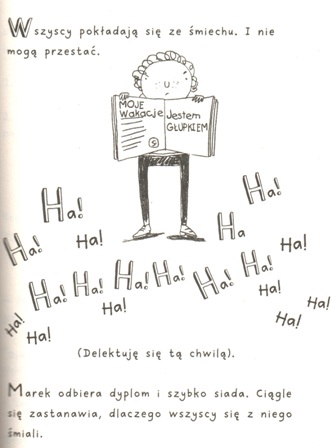 Wszyscy pokładają się ze śmiechu. I nie
mogą przestać.
MOJE
wakacje
Jestem
GŁUPKIEM
5
Ha!
Ha!
Ha!
Ha!
Ha
Ha!
Ha!
Ha!
Ha!
Ha!
Ha!
Ha!
Ha!
Ha!
Ha!
Ha!
Ha!
Ha!
(Delektuję się tą chwilą).
Marek odbiera dyplom i szybko siada. Ciągle
się zastanawia, dlaczego wszyscy się z niego
śmiali.